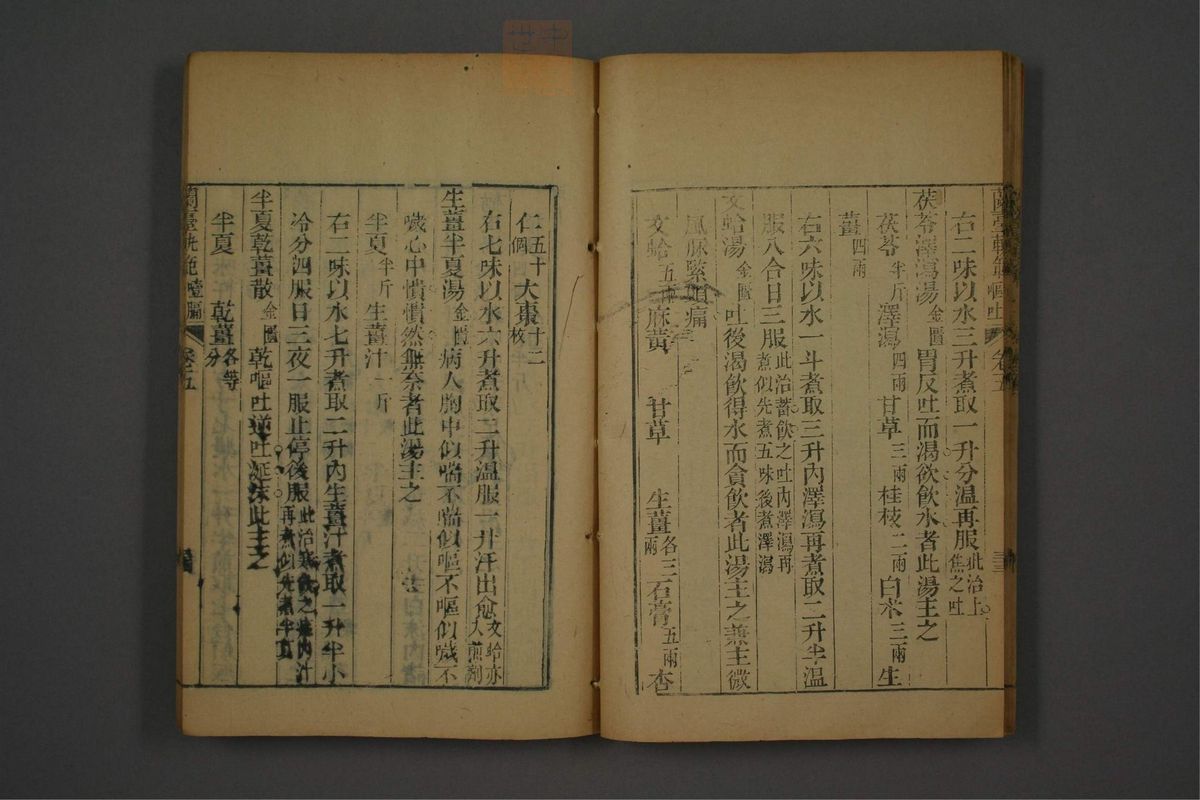 蘭臺軌範 嘔吐 卷五
右二味以水三升煮取一升分温再服此治上焦之吐
茯苓澤瀉湯金匱胃反吐而渴欲飲水者此湯主之
茯苓半斤 澤瀉四兩 甘草二兩 桂枝二兩 白朮三兩 生
薑四兩
右六味以水一斗煮取三升內澤瀉再煮取二升半温
服八合日三服此治蓄飲之吐內澤瀉再煮似先煮五味後煮澤瀉
文蛤湯金匱吐後渴飲得水而貪飲者此湯主之兼主微
風脉緊頭痛
文蛤五兩 麻黃 甘草 生薑各三兩 石膏五兩 杏
仁五十個 大棗十二枚
右七味以水六升煮取二升温服一升汗出愈文蛤亦入煎劑
生薑半夏湯金匱病人胸中似喘不喘似嘔不嘔似噦不
噦心中憒憒然無奈者此湯主之
半夏半斤 生薑汁一斤
右二味以水七升煮取二升內生薑汁煮取一升半小
冷分四服日三夜一服止停後服此治寒飲之
半夏乾薑散金匱乾嘔吐逆吐涎沫此主之
半夏 乾薑各等分
蘭臺軌範 噎膈 卷五